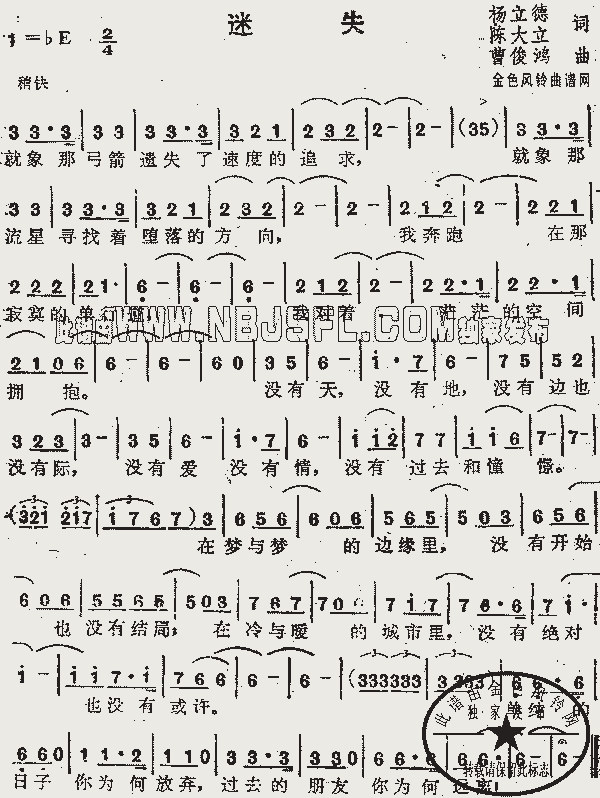 迷失
杨立德 词
陈大立
曹俊鸿 曲
1=♭E 2/4
金色风铃曲谱网
稍快
3 3·3 | 3 3 | 3 3·3 | 3 2 1 | 2 3 2 | 2 - | 2 - | (35) | 3 3·3
就象 那 弓箭 遗失 了 速度的 追 求, 就象 那
3 3 | 3 3·3 | 3 2 1 | 2 3 2 | 2 - | 2 - | 2 1 2 | 2 - | 2 2 1
流星 寻找 着 堕落的 方 向, 我奔跑 在那
2 2 2 | 2 1· | 6 - | 6 - | 6 - | 2 1 2 | 2 - | 2 2·1 | 2 2·1
寂寞的 单行 我对着 茫 茫 的 空 间
2 1 0 6 | 6 - | 6 - | 6 0 | 6 - | i·7 | 6 - | 7 5 | 5 2
拥 抱。 没有 天, 没 有 地, 没有 边也
3 2 3 | 3 - | 3 5 | 6 - | i·7 | 6 - | i i 2 | 7 7 | i i 6 | 7 - | 7 -
没有际, 没有 爱 没 有 情, 没有 过去 和憧 憬。
(3 2 1 2 1 7 | i 7 6 7) 3 | 6 5 6 | 6 0 6 | 5 6 5 | 5 0 3 | 6 5 6
在 梦与梦 的 边缘里, 没 有开始
6 0 6 | 5 5 6 5 | 5 0 3 | 7 6 7 | 7 0 6 | 7 i 7 | 7 6·6 | 7 i·
也 没有结局; 在 冷与暖 的 城市里, 没有 绝对
i - | i - | i i 7·i | 7 6 6 | 6 - | 6 - | (333333 | 3 333) | 6 6·6
也没有 或许。 的
6 6 0 | 1 1·2 | 1 1 0 | 3 3·3 | 3 3 0 | 6 6·6 | 6·6 | 6 -
日子 你为 何 放弃, 过去 的 朋友 你为 何 远离!
转载请保留此标志
WWW.NBJSFL.COM
独家发布